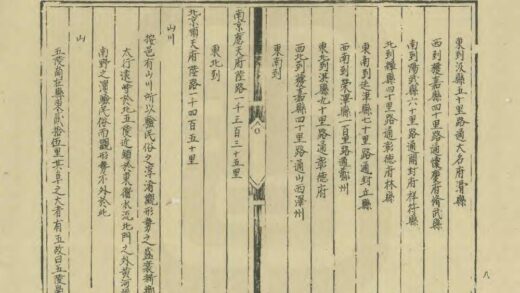 八
東到汲縣五十里路通大名府濬縣
西到獲嘉縣四十里路通懷慶府脩武縣
南到陽武縣六十里路通開封府祥符縣
北到輝縣四十里路通彰德府林縣
東南到延津縣七十里路通封丘縣
西南到滎澤縣一百里路通鄭州
東北到淇縣九十里路通彰德府
西北到獲嘉縣四十里路通山西澤州
東南到
南京應天府陸路一千三百三十五里
東北到
北京順天府陸路一千四百五十里
山川
按邑有山川所以驗民俗之淳淆觀形勢之盛衰
太行遠峙於北五陵近鎮於東衛水流北門之外黃河
南野之灣驗民俗而觀形勢不外於此
山
五陵崗在縣東
里其阜之大者有五故曰五陵